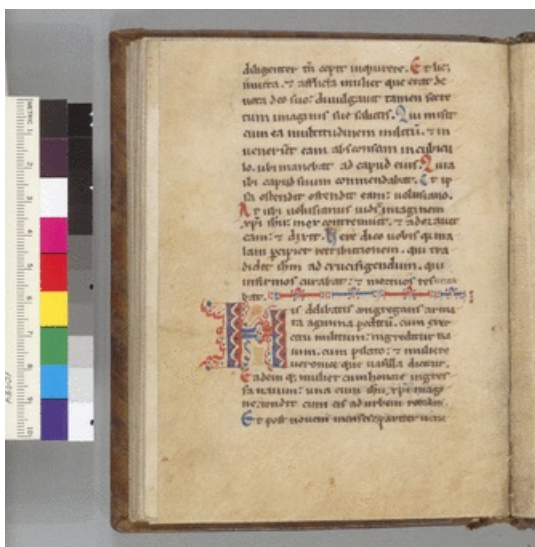 diligenter tm̄ cepit inquirere. Et lic;
inuita. ⁊ afflicta mulier que erat de
uota deo suo: diuulgauit tamen secre
tum imaginis sue salutis. Qui misit
cum ea multitudinem militū. ⁊ in
uenert̄ eam absconsam in cubicu
lo. ubi manebat ad capud eius. Quia
ibi capud suum commendabat. Et ip
sa ostendit ostendit eam: uolusiano.
At ubi uolusianus uidit imaginem
xp̄i ihu: mox contremuit. ⁊ adorauit
eam: ⁊ dixit. Vere dico uobis qa ma
lam percipiet retributionem. qui tra
didit ihm̄ ad crucifigendum. qui
infirmos curabat: ⁊ mortuos
bat.
His delibatis congregans arma
ta agmina peditū. cum exer
citu militum: ingreditur na
uim. cum pilato: ⁊ muliere
ueronice que uasilla dicitur.
Eadem q; mulier cum honore ingres
sa nauim: una cum ihu xp̄i imagi
ne: tendit cum eis ad urbem romam.
Et post nouem menses: pariter uene